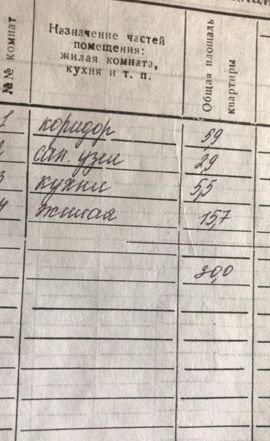 №№ комнат
Назначение частей
помещения:
жилая комната,
кухня и т. п.
Общая площадь
квартиры
1 коридор 5,9
2 сан. узел 2,9
3 кухни 5,5
4 жилая 15,7
30,0